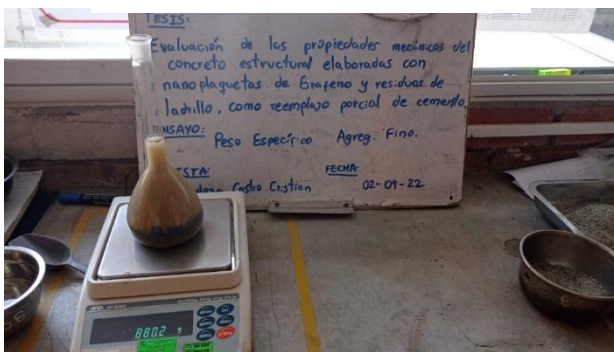 TESIS:
Evaluación de las propiedades mecánicas del
concreto estructural elaboradas con
nanoplaquetas de Grafeno y residuos de
ladrillo, como reemplazo parcial de cemento.
ENSAYO: Peso Específico Agreg. Fino.
FECHA:
Castro Cristian 02-09-22
AND
880.2 g